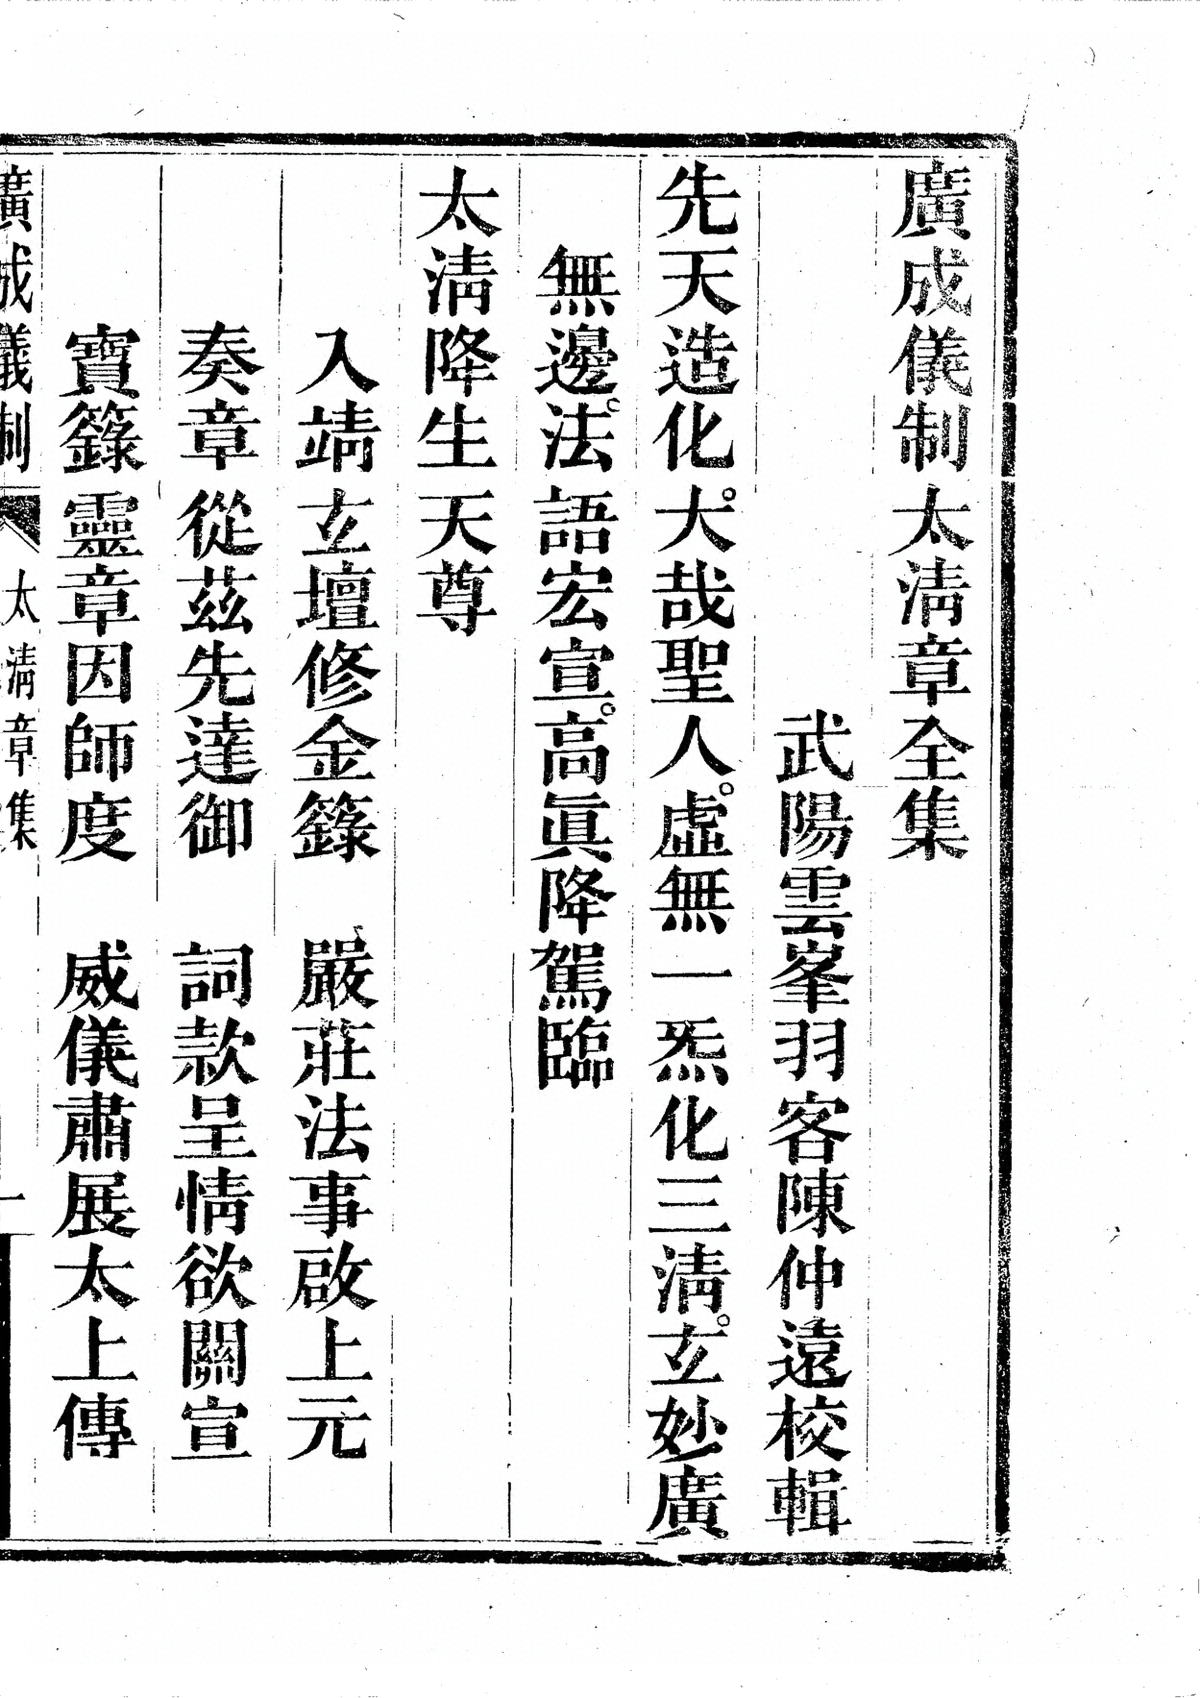 廣成儀制太清章全集
武陽雲峯羽客陳仲遠校輯
先天造化。大哉聖人。虛無一炁化三清。玄妙廣
無邊。法語宏宣。高眞降駕臨
太清降生天尊
入靖玄壇修金籙　嚴莊法事啟上元
奏章從茲先達御　詞款呈情欲關宣
寶籙靈章因師度　威儀肅展太上傳
廣成儀制　太清章集　一